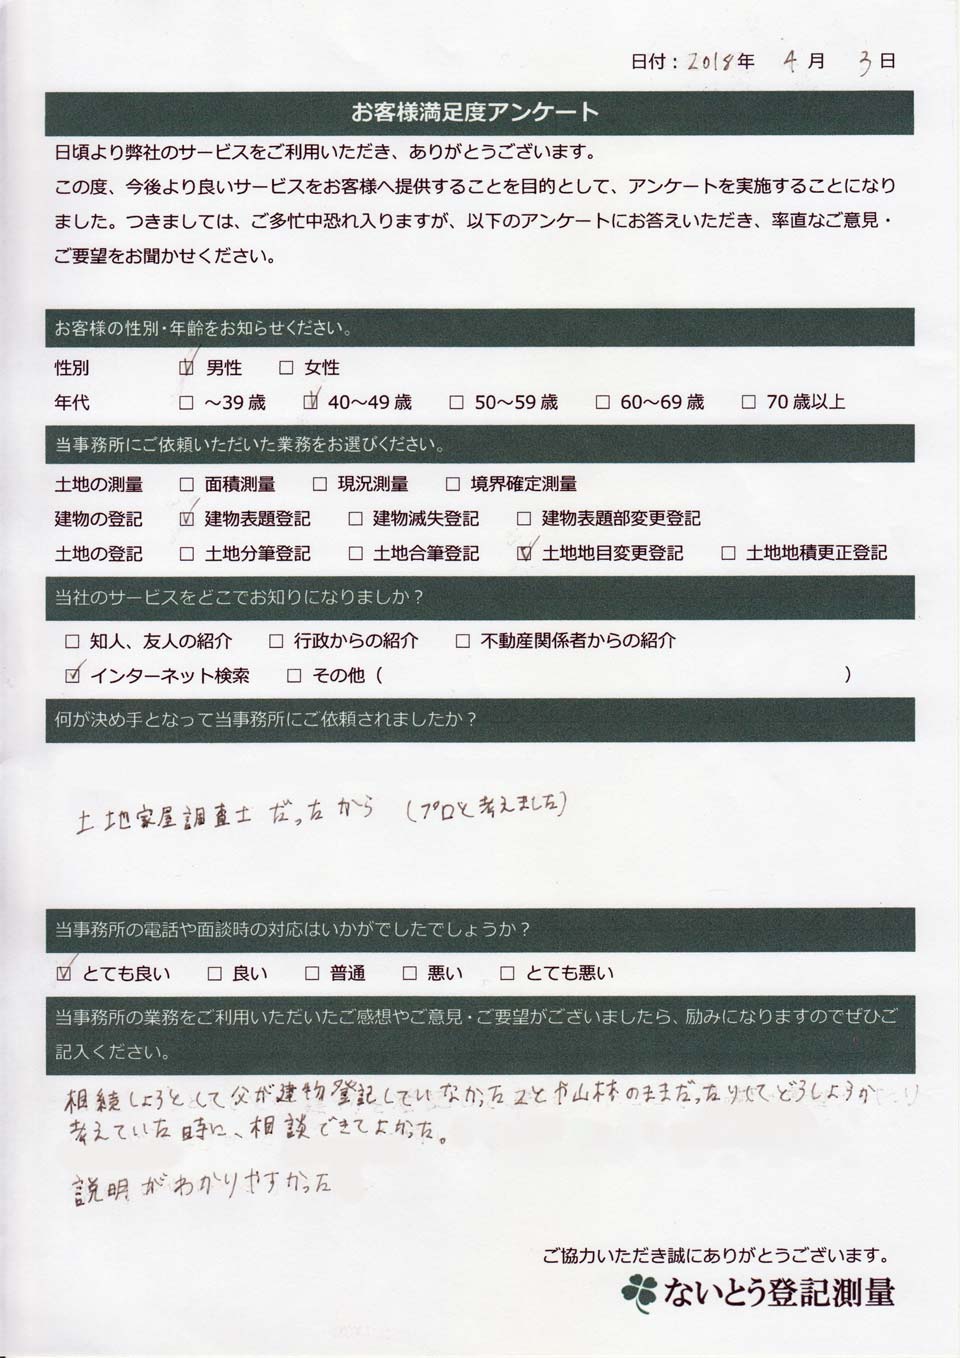 日付：2018年 4月 3日
お客様満足度アンケート
日頃より弊社のサービスをご利用いただき、ありがとうございます。
この度、今後より良いサービスをお客様へ提供することを目的として、アンケートを実施することになり
ました。つきましては、ご多忙中恐れ入りますが、以下のアンケートにお答えいただき、率直なご意見・
ご要望をお聞かせください。
お客様の性別・年齢をお知らせください。
性別 ☑ 男性 □ 女性
年代 □ ～39歳 ☑ 40～49歳 □ 50～59歳 □ 60～69歳 □ 70歳以上
当事務所にご依頼いただいた業務をお選びください。
土地の測量 □ 面積測量 □ 現況測量 □ 境界確定測量
建物の登記 ☑ 建物表題登記 □ 建物滅失登記 □ 建物表題部変更登記
土地の登記 □ 土地分筆登記 □ 土地合筆登記 ☑ 土地地目変更登記 □ 土地地積更正登記
当社のサービスをどこでお知りになりましか？
□ 知人、友人の紹介 □ 行政からの紹介 □ 不動産関係者からの紹介
☑ インターネット検索 □ その他（ ）
何が決め手となって当事務所にご依頼されましたか？
土地家屋調査士だったから （プロと考えました）
当事務所の電話や面談時の対応はいかがでしたでしょうか？
☑ とても良い □ 良い □ 普通 □ 悪い □ とても悪い
当事務所の業務をご利用いただいたご感想やご意見・ご要望がございましたら、励みになりますのでぜひご
記入ください。
相続しようとして父が建物登記していなかったことや山林のままだったりしてどうしようか
考えていた時に、相談できてよかった。
説明がわかりやすかった
ご協力いただき誠にありがとうございます。
ないとう登記測量